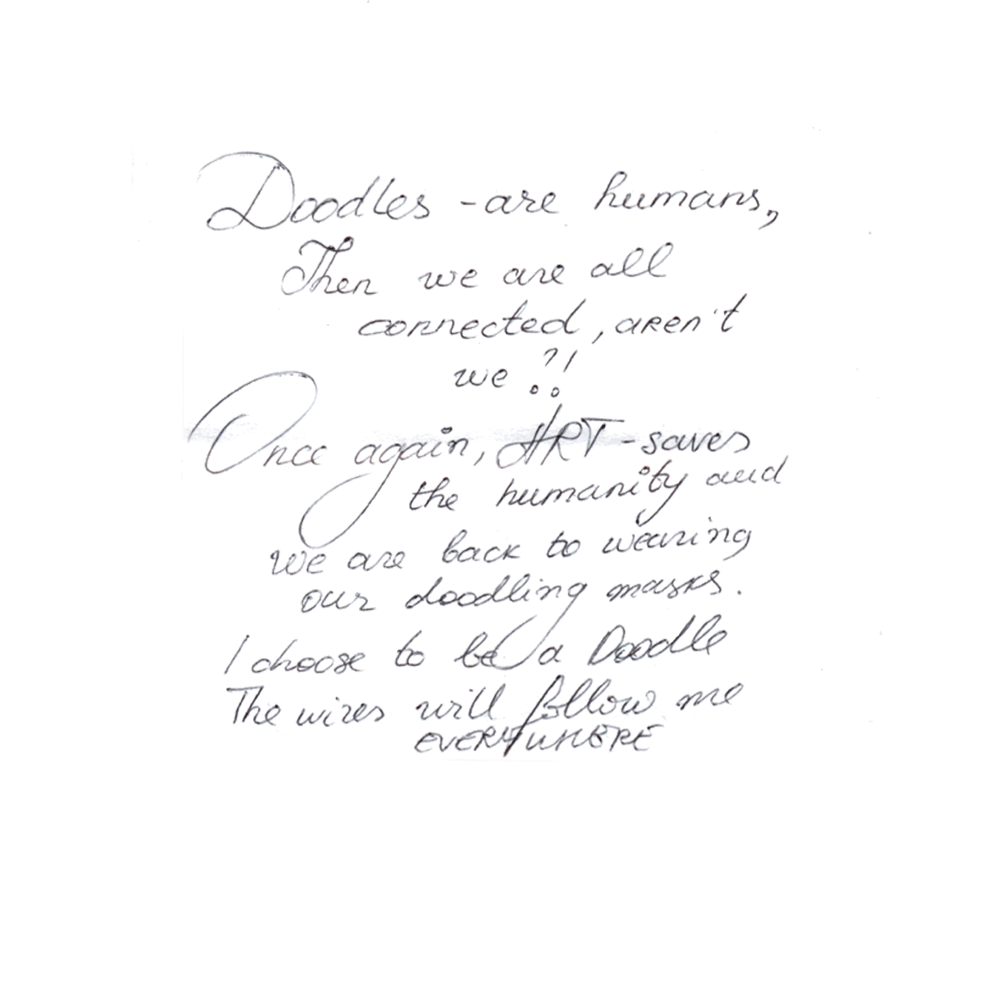 Doodles - are humans,
Then we are all
connected, aren't
we ?!
Once again, ART - saves
the humanity and
we are back to wearing
our doodling masks.
I choose to be a Doodle
The wires will follow me
EVERYWHERE